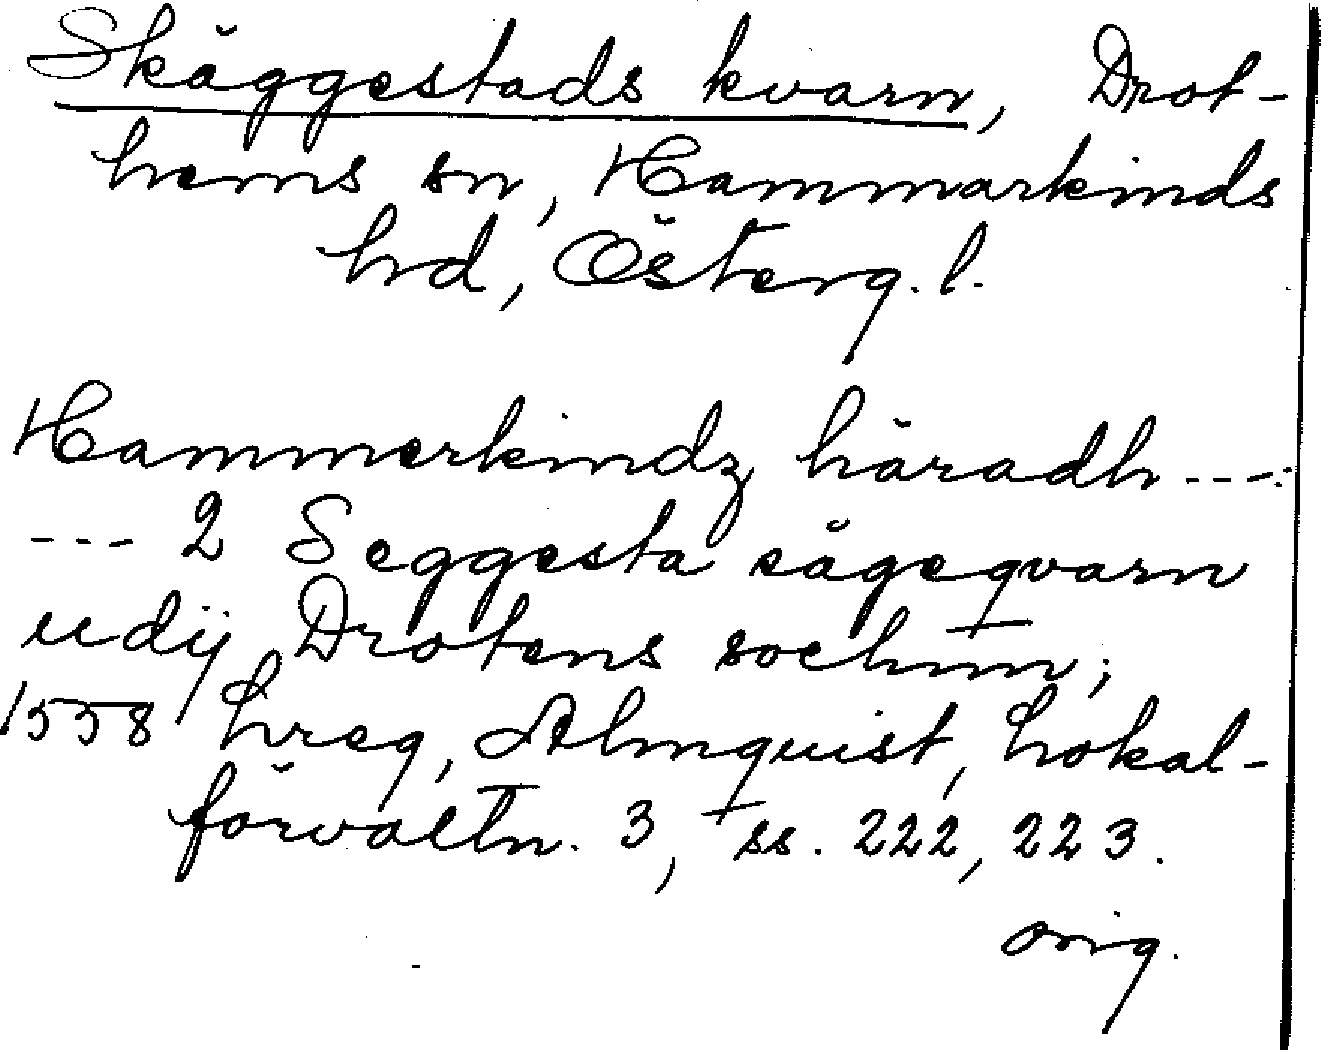 Skäggestads kvarn, Drot-
hems sn, Hammarkinds
hd, Österg. l.
Hammerkindz häradh ---
--- 2 Seggesta sågeqvarn
udij Drotens sochnn;
1558 hreg, Almquist, Lokal-
förvaltn. 3, ss. 222, 223.
orig.